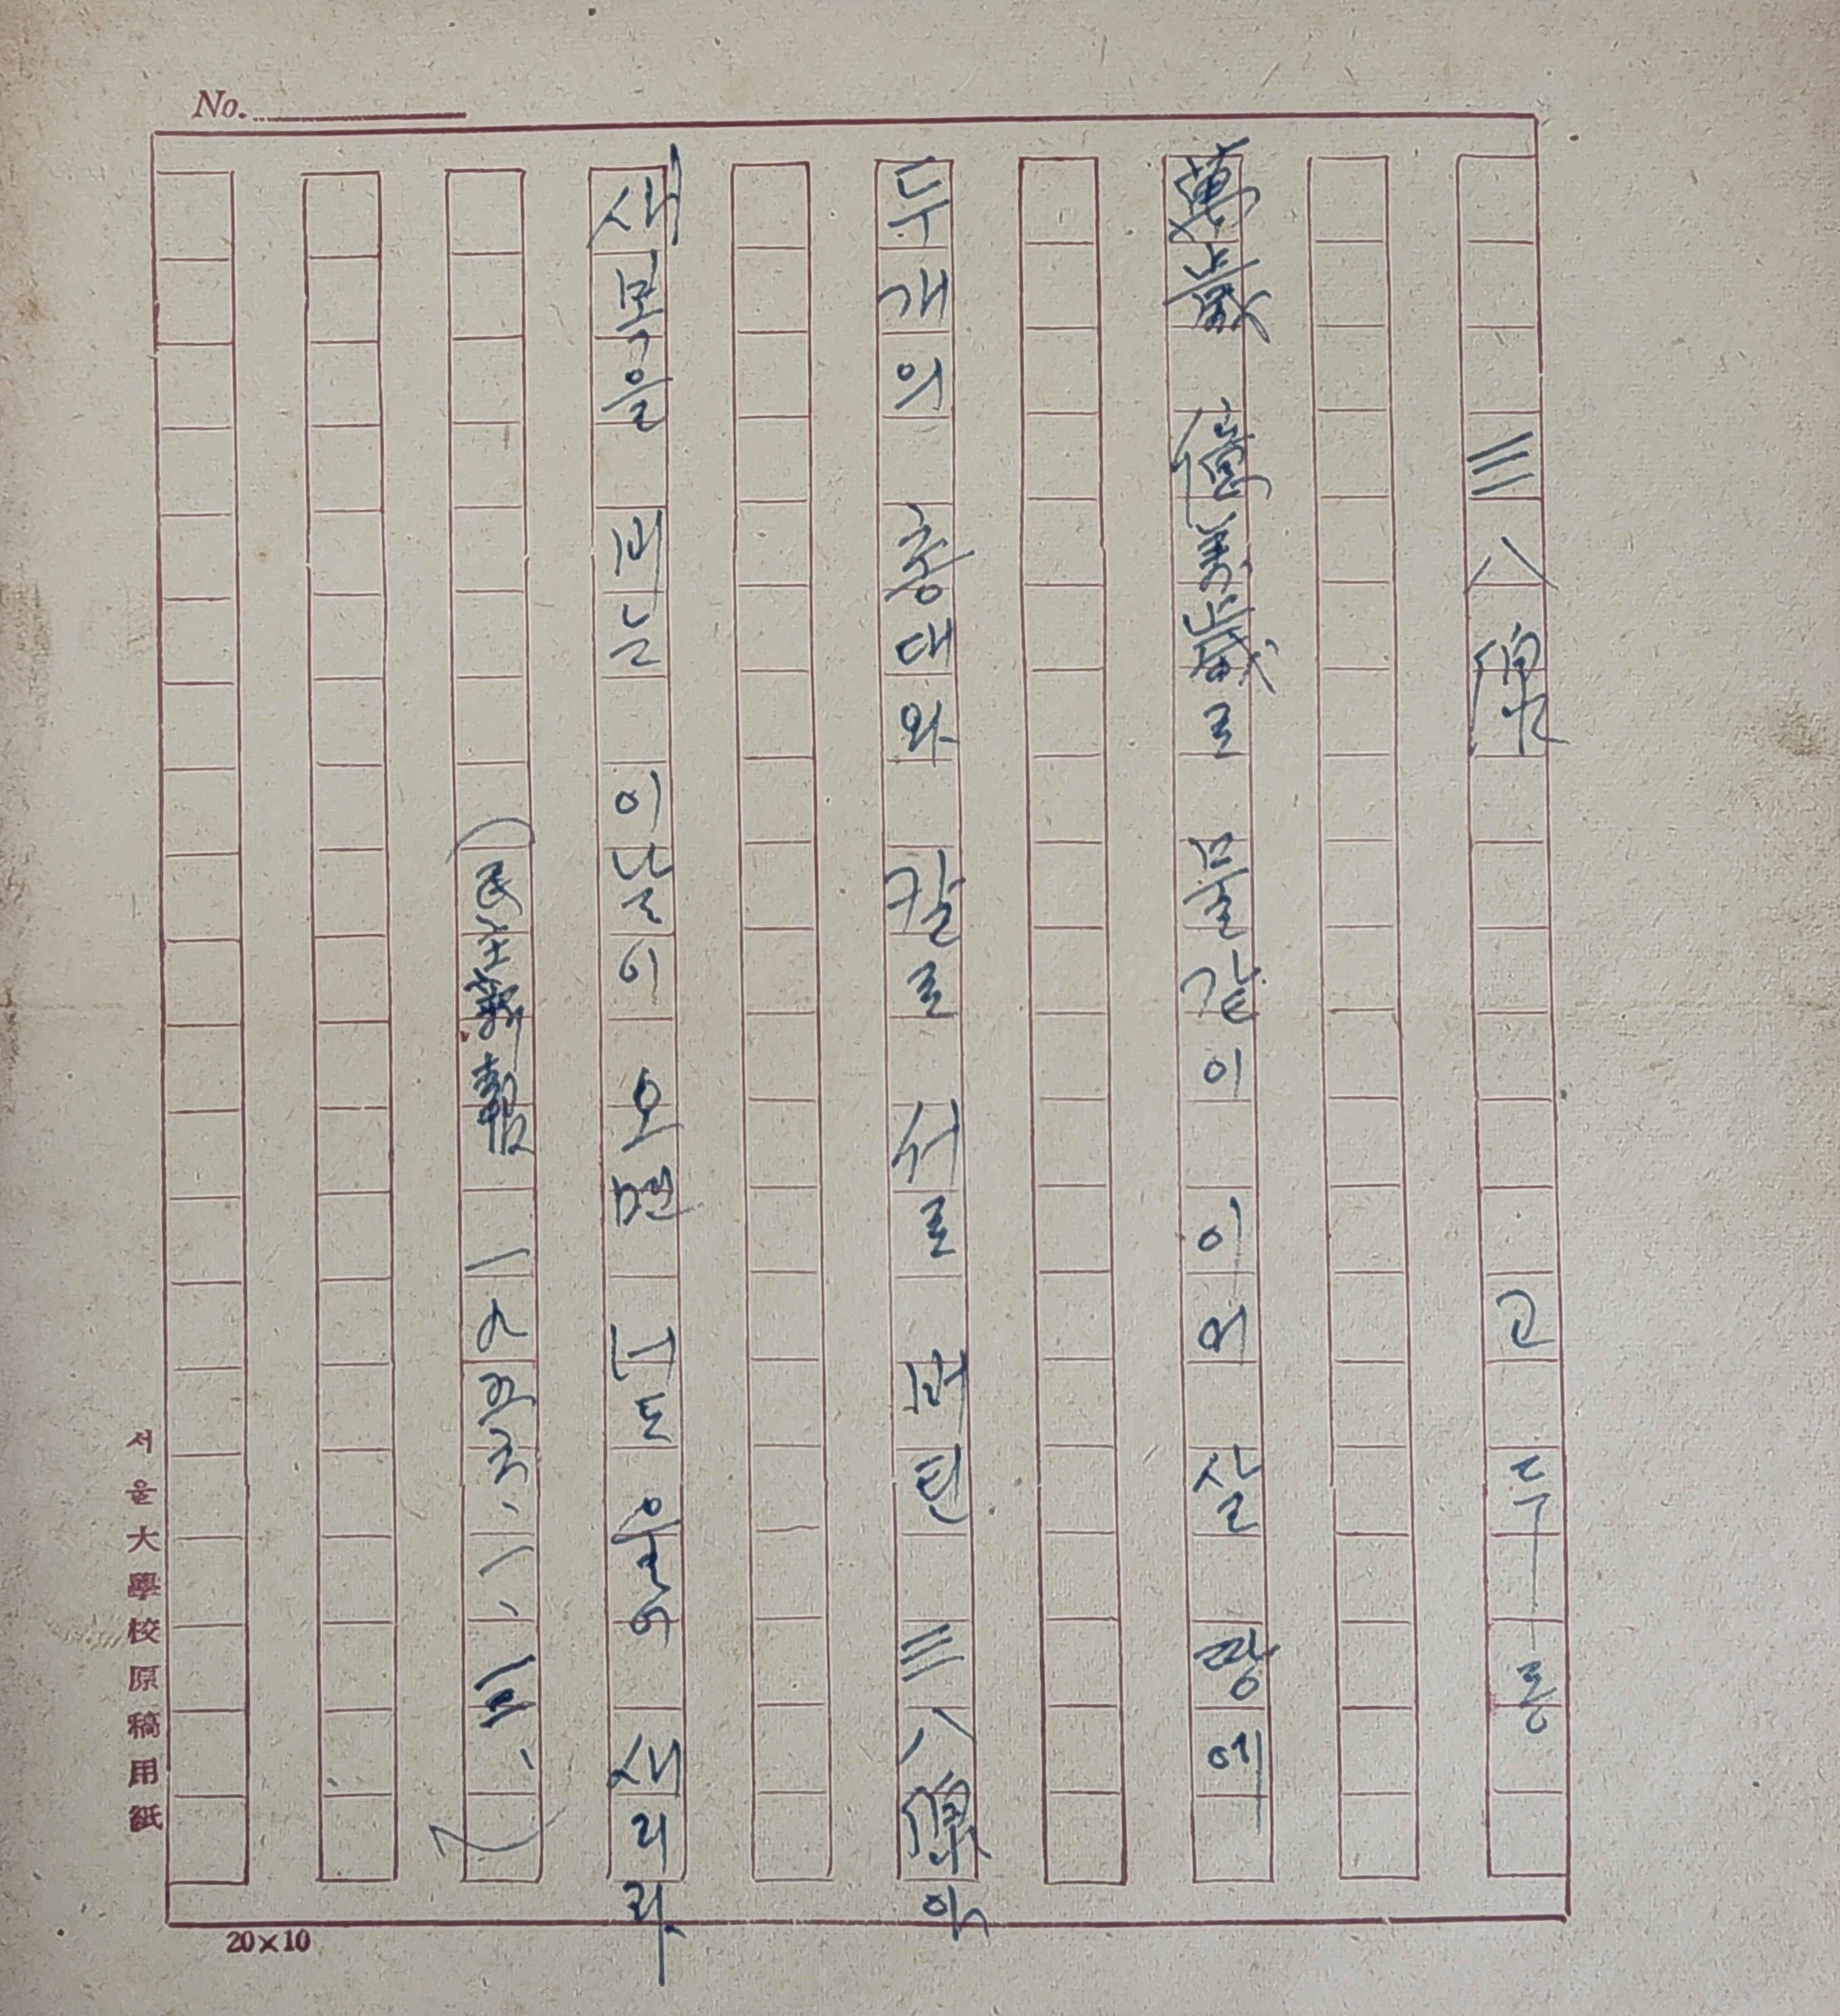 三八線 고두동
萬歲 億萬歲로 물같이 이어 살 땅에
두개의 총대와 칼로 서로 버틴 三八線아
새복을 비는 이날이 오면 너도 울어 새리라
(民主衆報 一九四六、一、三、)
No.
서울大學校原稿用紙
20×10